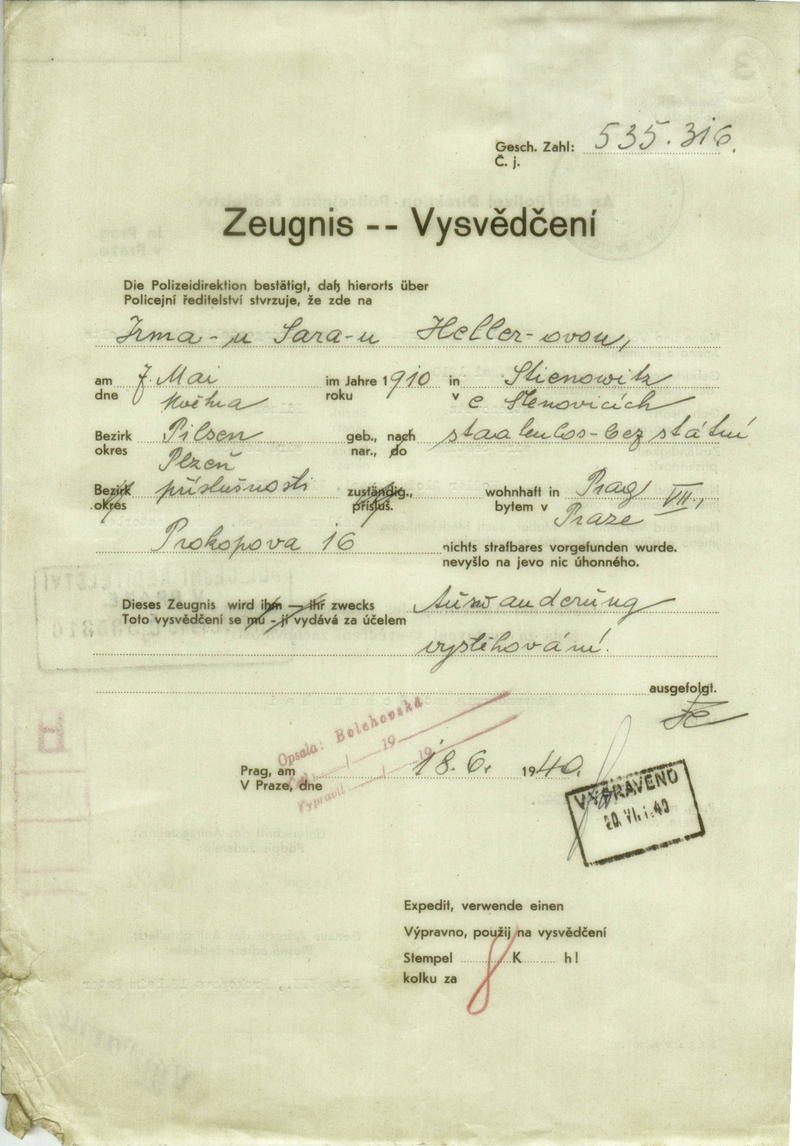 Gesch. Zahl: 535.316.
Č. j.
Zeugnis -- Vysvědčení
Die Polizeidirektion bestätigt, daß hierorts über
Policejní ředitelství stvrzuje, že zde na
Irma-u Sara-u Heller-ovou,
am 7. Mai im Jahre 1910 in Stienowitz
dne května roku v e Stenovicích
Bezirk Pilsen geb., nach staatenlos-bez státní
okres Plzeň nar., do
Bezirk příslušnosti zuständig., wohnhaft in Prag VII.,
okres přísluš. bytem v Praze
Prokopova 16 nichts strafbares vorgefunden wurde.
nevyšlo na jevo nic úhonného.
Dieses Zeugnis wird ihm — ihr zwecks Auswanderung
Toto vysvědčení se mu - jí vydává za účelem
vystěhování.
ausgefolgt.
Opsala: Bolehovská
19
19
Vypravil
Prag, am 18.6. 1940.
V Praze, dne
VYPRAVENO
20. VI. 40
Expedit, verwende einen
Výpravno, použij na vysvědčení
Stempel 8 K h!
kolku za